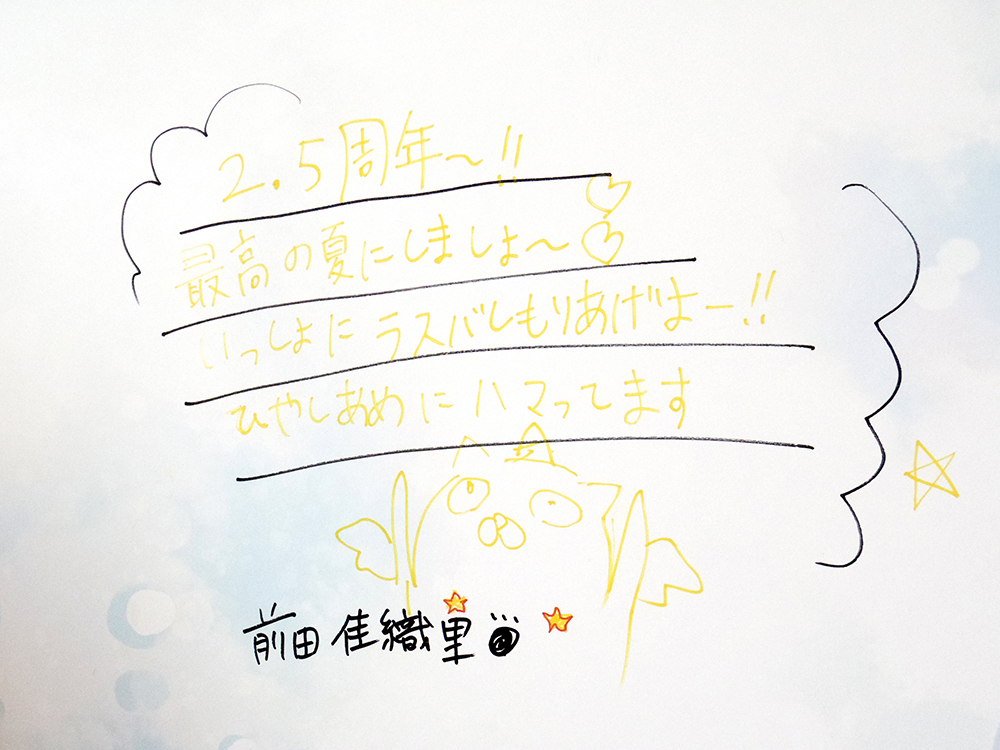 2.5周年〜!!
最高の夏にしましょ〜♡♡
いっしょにラスバしもりあげよー!!
ひやしあめにハマってます
前田佳織里